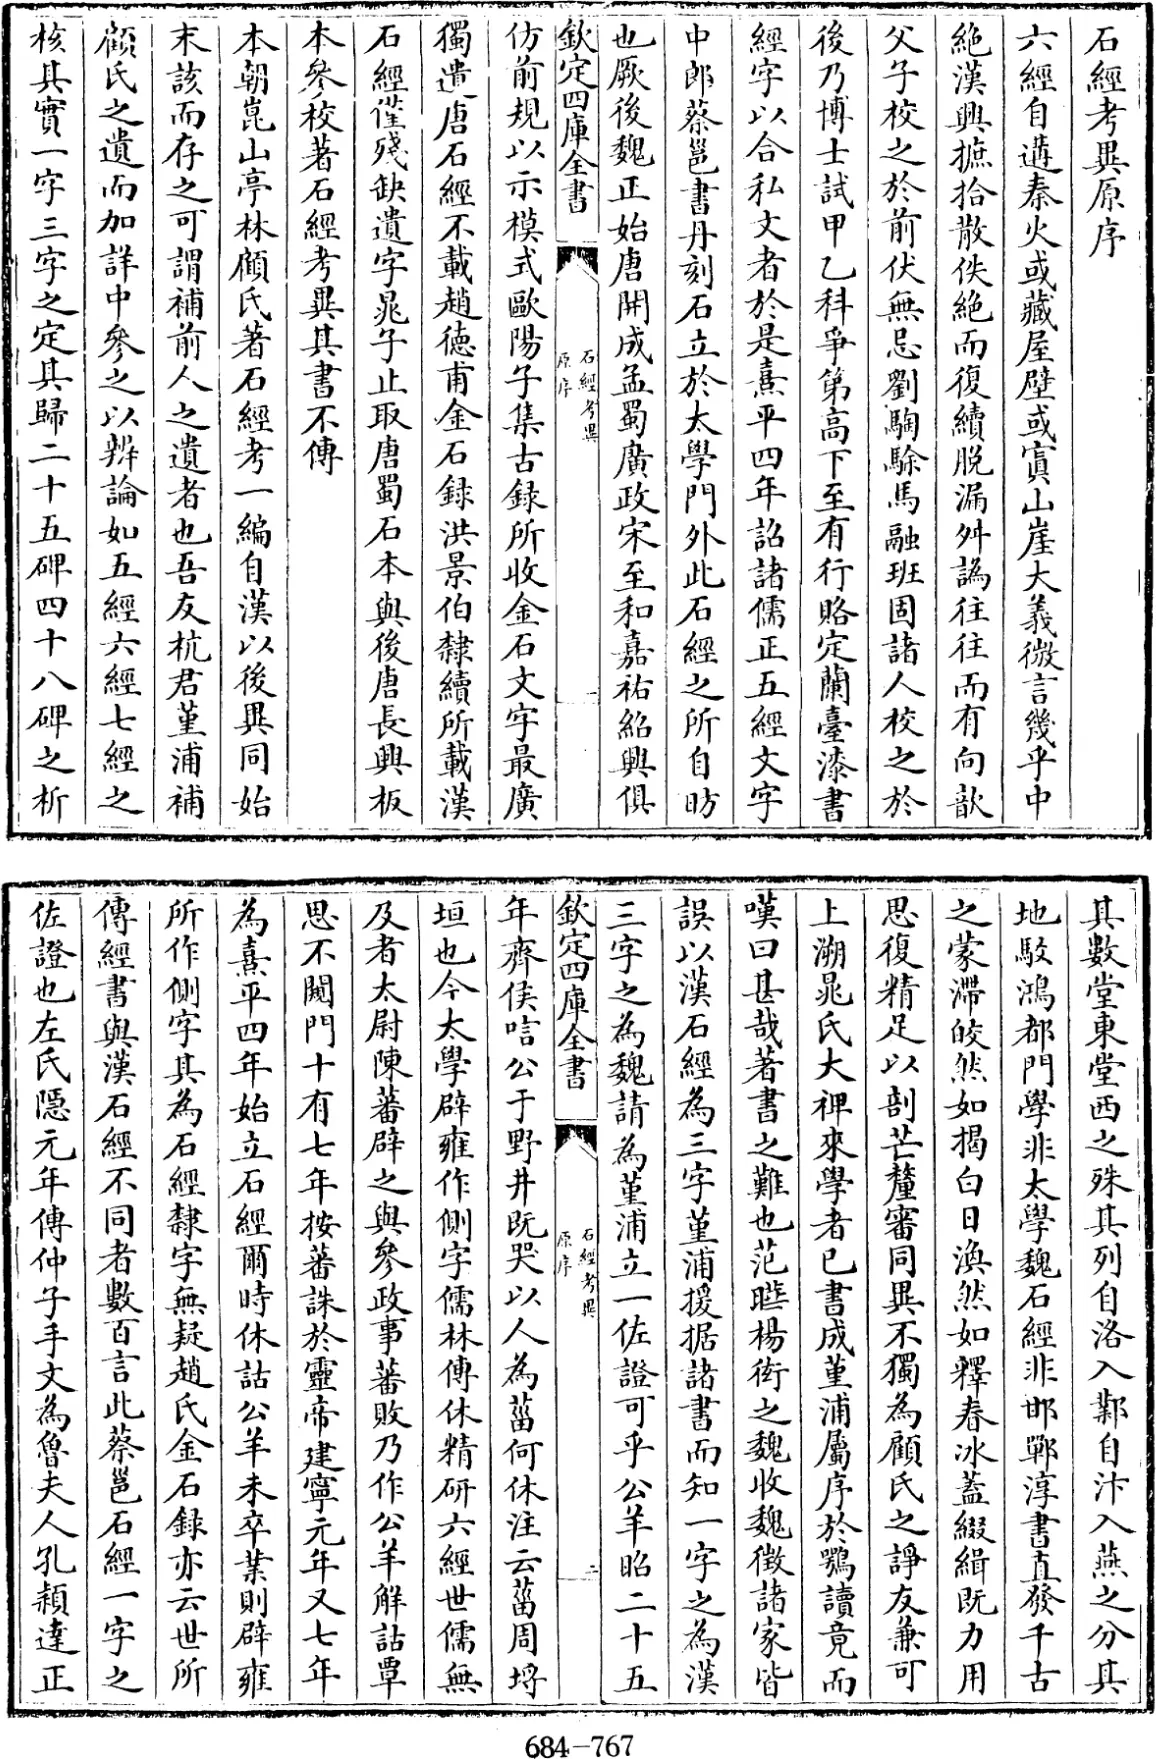 石經考異原序
六經自遘秦火或藏屋壁或寘山崖大義微言幾乎中
絶漢興摭拾散佚絶而復續脱漏舛譌往往而有向歆
父子校之於前伏無忌劉騊駼馬融班固諸人校之於
後乃博士試甲乙科爭第高下至有行賂定蘭臺漆書
經字以合私文者於是熹平四年詔諸儒正五經文字
中郎蔡邕書丹刻石立於太學門外此石經之所自昉
也厥後魏正始唐開成孟蜀廣政宋至和嘉祐紹興俱
欽定四庫全書
石經考異
原序
一
仿前規以示模式歐陽子集古録所收金石文字最廣
獨遺唐石經不載趙德甫金石録洪景伯隸續所載漢
石經僅殘缺遺字晁子止取唐蜀石本與後唐長興板
本參校著石經考異其書不傳
本朝崑山亭林顧氏著石經考一編自漢以後異同始
末該而存之可謂補前人之遺者也吾友杭君堇浦補
顧氏之遺而加詳中參之以辨論如五經六經七經之
核其實一字三字之定其歸二十五碑四十八碑之析
其數堂東堂西之殊其列自洛入鄴自汴入燕之分其
地駮鴻都門學非太學魏石經非邯鄲淳書直發千古
之蒙滯皎然如揭白日渙然如釋春冰蓋綴緝既力用
思復精足以剖芒釐審同異不獨為顧氏之諍友兼可
上溯晁氏大裨來學者已書成堇浦屬序於鶚讀竟而
嘆曰甚哉著書之難也范曄楊衒之魏收魏徵諸家皆
誤以漢石經為三字堇浦援据諸書而知一字之為漢
三字之為魏請為堇浦立一佐證可乎公羊昭二十五
欽定四庫全書
石經考異
原序
二
年齊侯唁公于野井既哭以人為菑何休注云菑周埒
垣也今太學辟雍作側字儒林傳休精研六經世儒無
及者太尉陳蕃辟之與參政事蕃敗乃作公羊解詁覃
思不闚門十有七年按蕃誅於靈帝建寧元年又七年
為熹平四年始立石經爾時休詁公羊未卒業則辟雍
所作側字其為石經隸字無疑趙氏金石録亦云世所
傳經書與漢石經不同者數百言此蔡邕石經一字之
佐證也左氏隱元年傳仲子手文為魯夫人孔穎達正
684-767